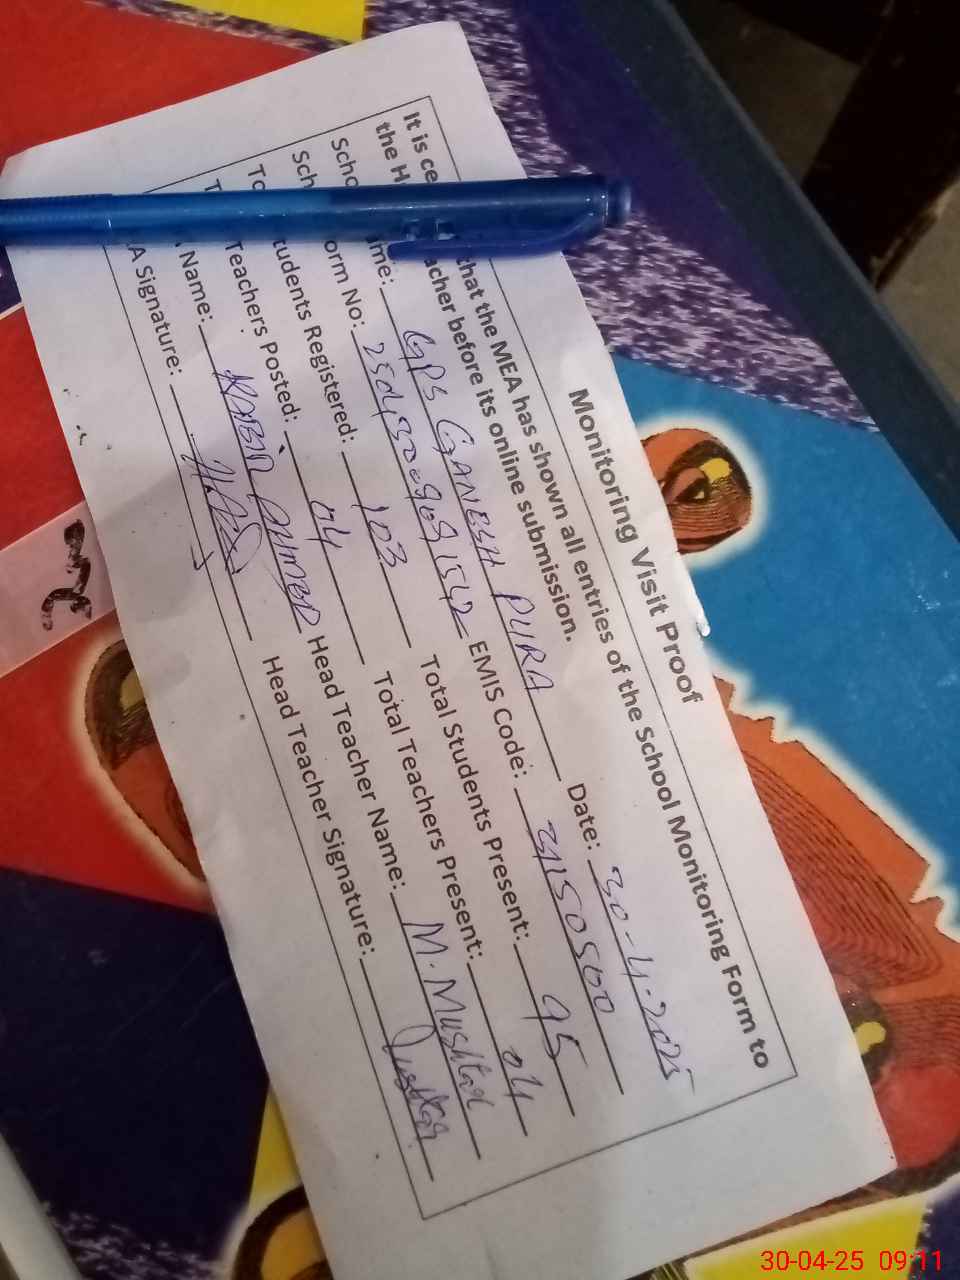 Monitoring Visit Proof
It is ce that the MEA has shown all entries of the School Monitoring Form to
the H acher before its online submission.
Date: 30-4-2025
Scho ame: GPS GANESH PURA
EMIS Code: 31150500
Sch orm No:
Total Students Present: 95
To tudents Registered: 103
Total Teachers Present: 04
T Teachers Posted: 04
Head Teacher Name: M. Mushtaq
Name: KABIR AHMED
Head Teacher Signature:
A Signature:
30-04-25 09:11